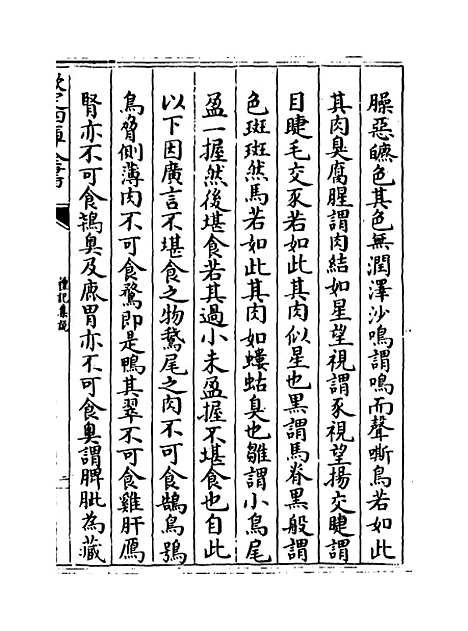 臊惡皫色其色無潤澤沙鳴謂鳴而聲嘶鳥若如此
其肉臭腐腥謂肉結如星望視謂豕視望揚交睫謂
目睫毛交豕若如此其肉似星也黑謂馬脊黑般謂
色斑斑然馬若如此其肉如螻蛄臭也雛謂小鳥尾
盈一握然後堪食若其過小未盈握不堪食也自此
以下因廣言不堪食之物鵞尾之肉不可食鵠鳥鴞
鳥脅側薄肉不可食鶩即是鴨其翠不可食雞肝鴈
腎亦不可食鴇奥及麃胃亦不可食奥謂脾肶為藏
欽定四庫全書
禮記集説
二